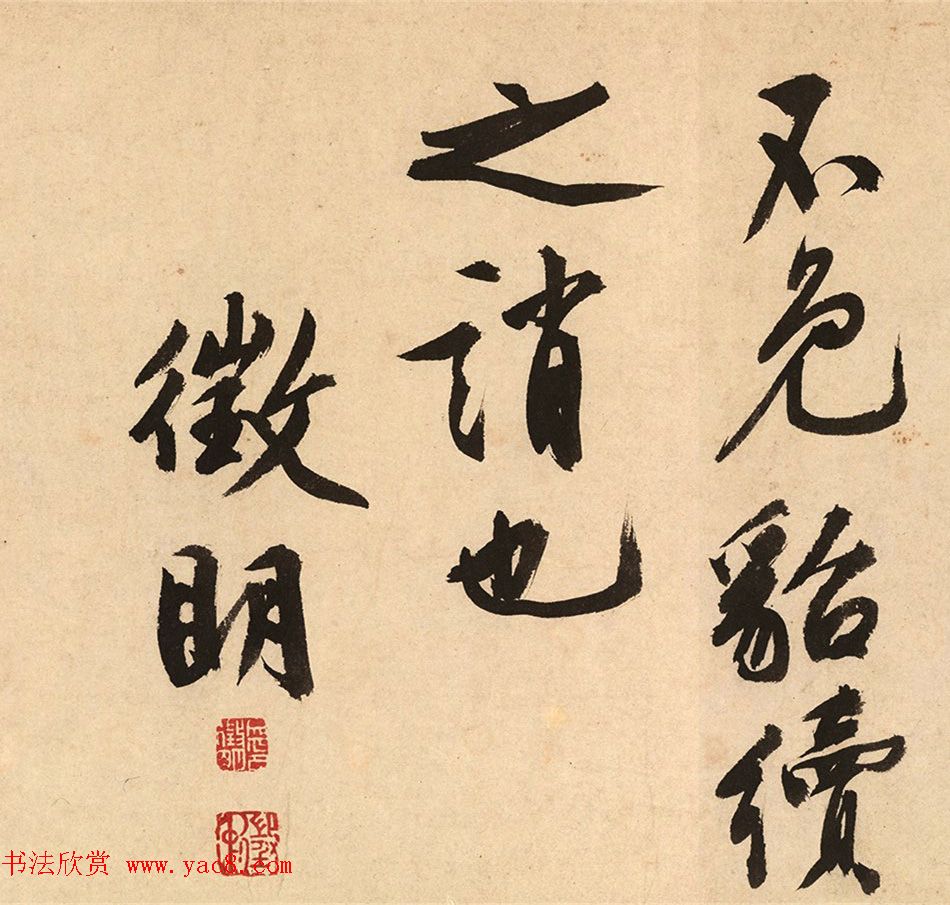 不免貂續
之誚也
徵明
书法欣赏 www.yac8.com